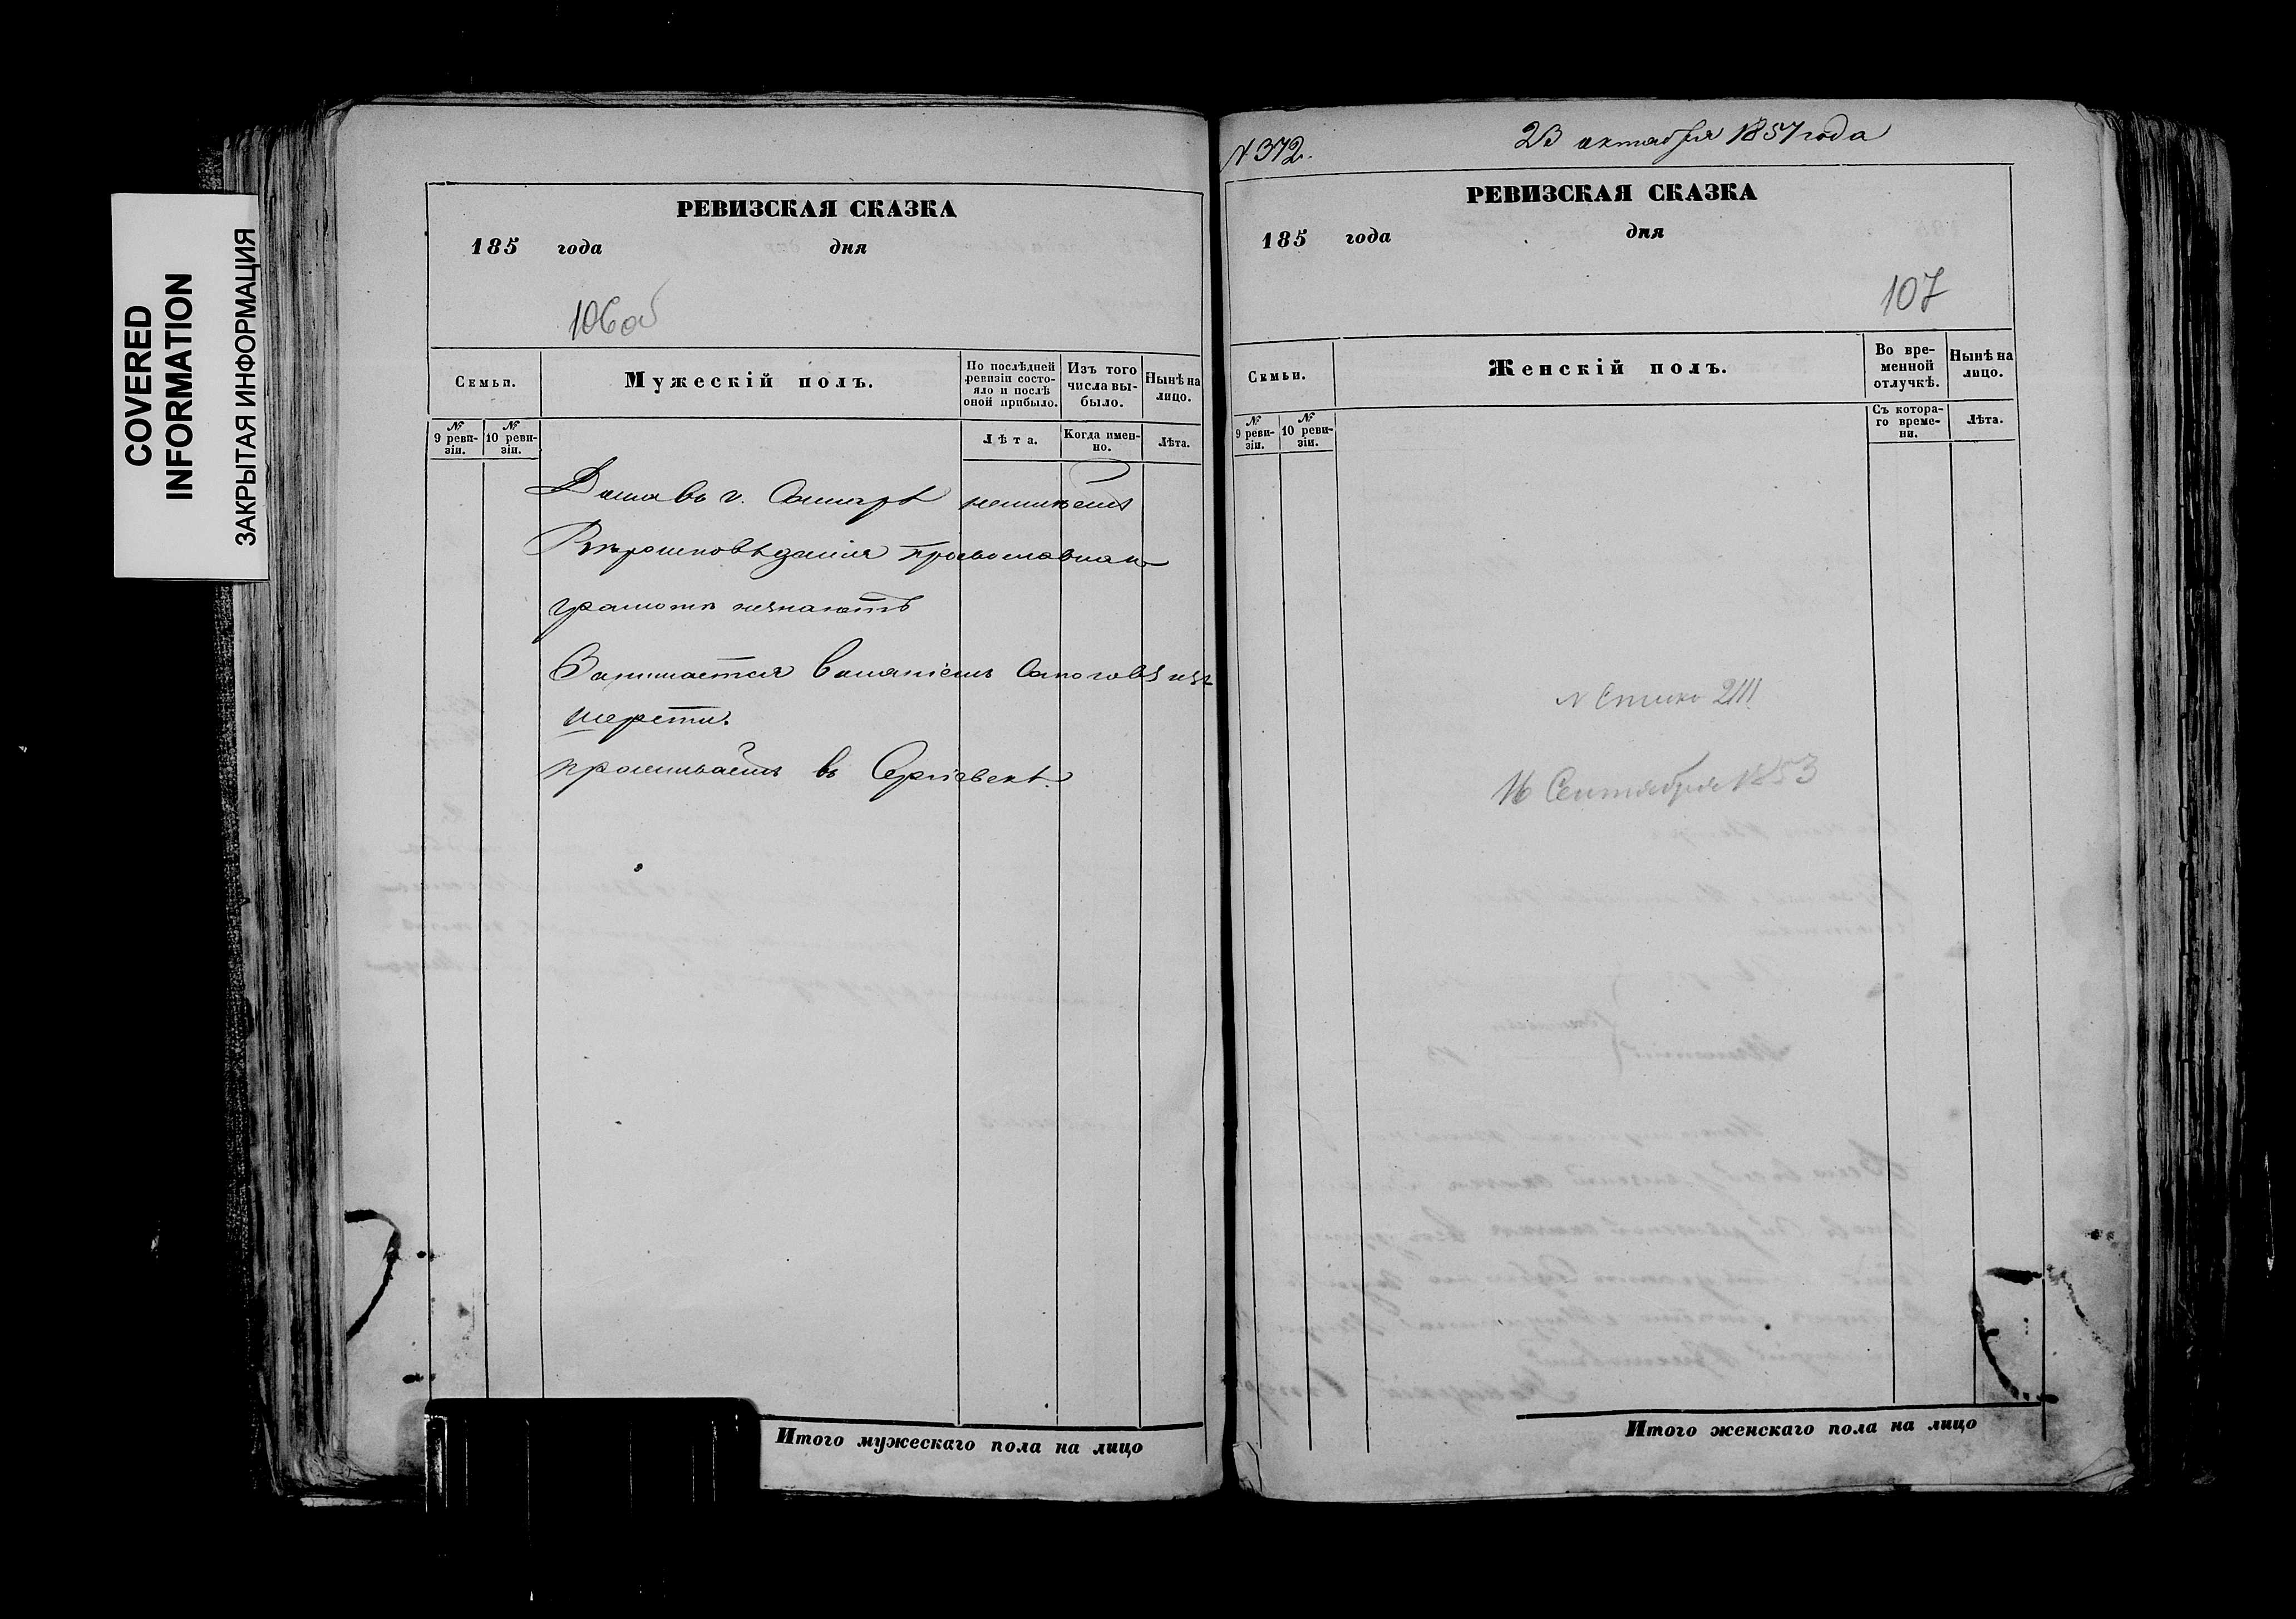 COVERED
INFORMATION
ЗАКРЫТАЯ ИНФОРМАЦИЯ
РЕВИЗСКАЯ СКАЗКА
185 года дня
106об
Семьи.
Мужескій полъ.
По послѣдней
ревизіи состо-
яло и послѣ
оной прибыло.
Изъ того
числа вы-
было.
Нынѣ на
лицо.
№
9 реви-
зіи.
№
10 реви-
зіи.
Лѣта.
Когда имен-
но.
Лѣта.
Дома въ г. Самарѣ неимѣетъ
Вѣроисповѣданія православнаго
грамотѣ незнаютъ
Занимается валяніемъ сапоговъ изъ
шерсти.
проживаетъ въ Сергіевскѣ.
Итого мужескаго пола на лицо
№ 372.
23 октября 1857 года
РЕВИЗСКАЯ СКАЗКА
185 года дня
107
Семьи.
Женскій полъ.
Во вре-
менной
отлучкѣ.
Нынѣ на
лицо.
№
9 реви-
зіи.
№
10 реви-
зіи.
Съ котора-
го време-
ни.
Лѣта.
16 Сентября 1853
Итого женскаго пола на лицо